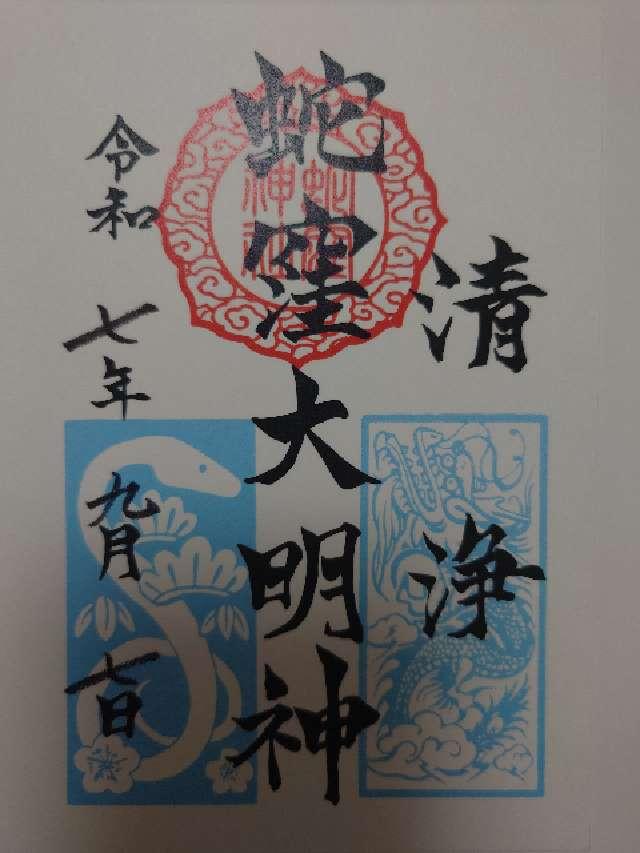 清浄
蛇窪大明神
令和七年九月七日
蛇窪
神社